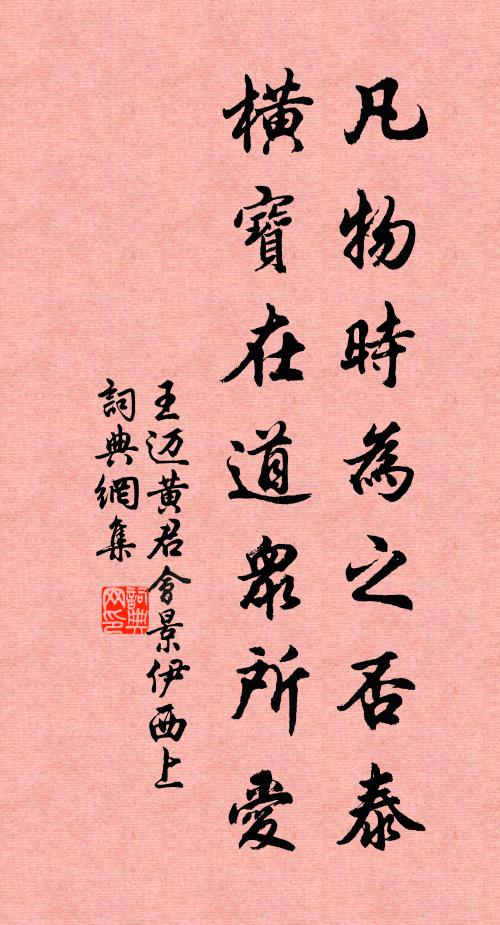 凡物時為之否泰
橫寶在道衆所愛
王迈黄君會景伊西上
詞典網集
詞典网印